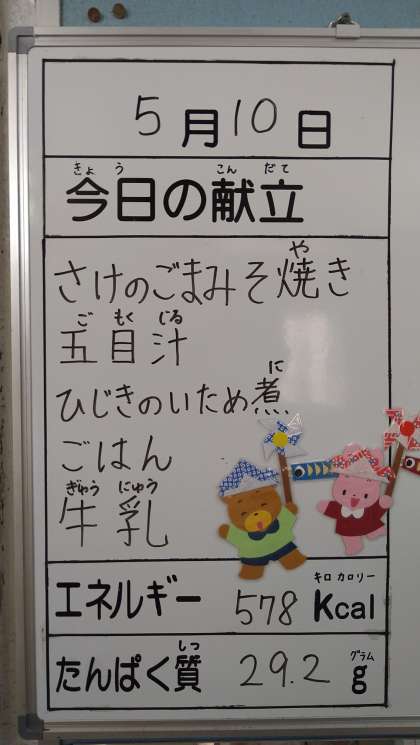 5月10日
きょう こんだて
今日の献立
や
さけのごまみそ焼き
ご もく じる
五目汁
に
ひじきのいため煮
ごはん
ぎゅう にゅう
牛乳
キロ カロリー
エネルギー 578 Kcal
しつ グラム
たんぱく質 29.2 g